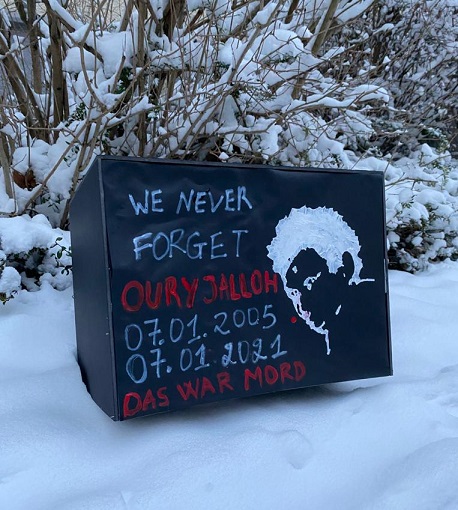 WE NEVER
FORGET
OURY JALLOH
07.01.2005
07.01.2021
DAS WAR MORD